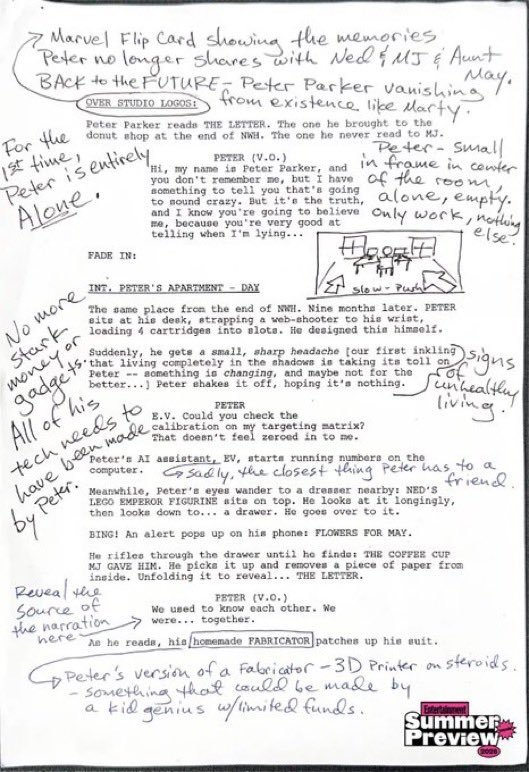 Marvel Flip Card showing the memories
Peter no longer shares with Ned & MJ & Aunt May.
BACK to the FUTURE - Peter Parker vanishing
from existence like Marty.
OVER STUDIO LOGOS:
Peter Parker reads THE LETTER. The one he brought to the
donut shop at the end of NWH. The one he never read to MJ.
For the
1st time,
Peter is entirely
Alone.
PETER (V.O.)
Hi, my name is Peter Parker, and
you don't remember me, but I have
something to tell you that's going
to sound crazy. But it's the truth,
and I know you're going to believe
me, because you're very good at
telling when I'm lying...
Peter - small
in frame in center
of the room,
alone, empty.
Only work, nothing
else.
FADE IN:
slow - Push
INT. PETER'S APARTMENT - DAY
The same place from the end of NWH. Nine months later. PETER
sits at his desk, strapping a web-shooter to his wrist,
loading 4 cartridges into slots. He designed this himself.
No more
Stark
money or
gadgets.
All of his
tech needs to
have been made
by Peter.
Suddenly, he gets a small, sharp headache [our first inkling
that living completely in the shadows is taking its toll on
Peter -- something is changing, and maybe not for the
better...] Peter shakes it off, hoping it's nothing.
signs
of
unhealthy
living.
PETER
E.V. Could you check the
calibration on my targeting matrix?
That doesn't feel zeroed in to me.
Peter's AI assistant, EV, starts running numbers on the
computer.
Sadly, the closest thing Peter has to a
friend.
Meanwhile, Peter's eyes wander to a dresser nearby: NED'S
LEGO EMPEROR FIGURINE sits on top. He looks at it longingly,
then looks down to... a drawer. He goes over to it.
BING! An alert pops up on his phone: FLOWERS FOR MAY.
He rifles through the drawer until he finds: THE COFFEE CUP
MJ GAVE HIM. He picks it up and removes a piece of paper from
inside. Unfolding it to reveal... THE LETTER.
Reveal the
source of
the narration
here
PETER (V.O.)
We used to know each other. We
were... together.
As he reads, his homemade FABRICATOR patches up his suit.
Peter's version of a Fabricator - 3D Printer on steroids.
- something that could be made by
a kid genius w/limited funds.
Entertainment
Summer
Preview
2026